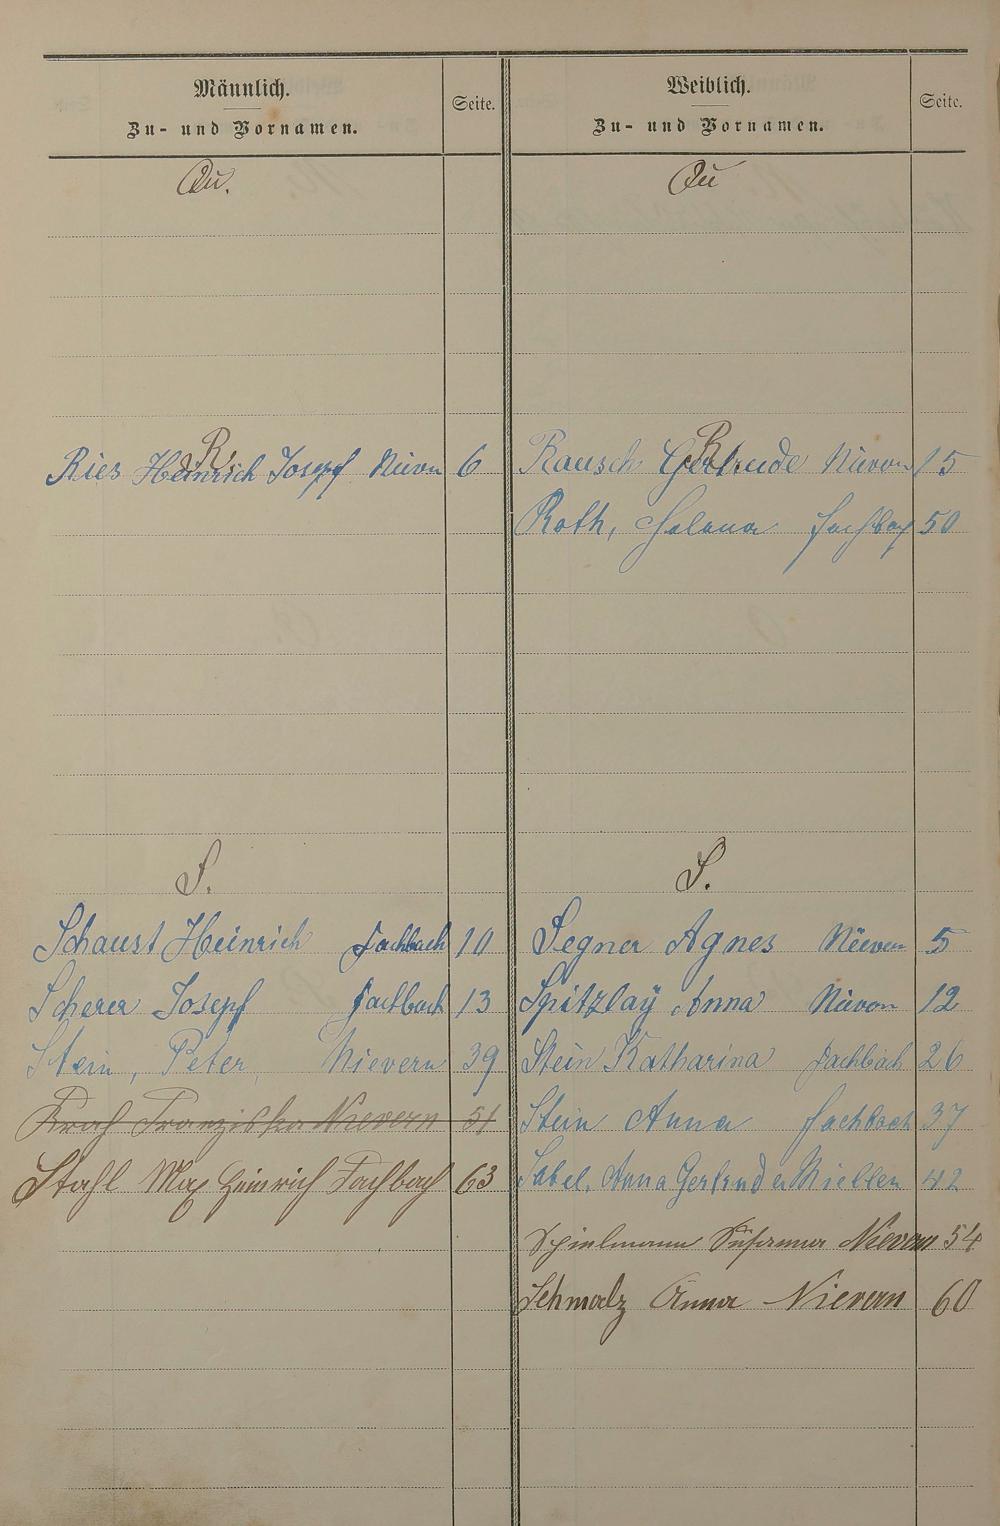 Männlich.
Zu- und Vornamen.
Seite.
Weiblich.
Zu- und Vornamen.
Seite.
Qu.
Qu
R.
R.
Ries Heinrich Josepf Nievern 6
Rausch Gertrude Nievern 15
Roth, Helena Fachbach 50
S.
S.
Schaust Heinrich Fachbach 10
Segner Agnes Nievern 5
Scherer Josepf Fachbach 13
Spitzlaÿ Anna Nievern 12
Stein, Peter, Nievern 39
Stein Katharina Fachbach 26
Franziska Nievern 51
Stein Anna Fachbach 37
Stahl Max Heinrich Fachbach 63
Sabel, Anna Gertrude Miellen 42
Spielmann Susanna Nievern 54
Schmalz Anna Nievern 60